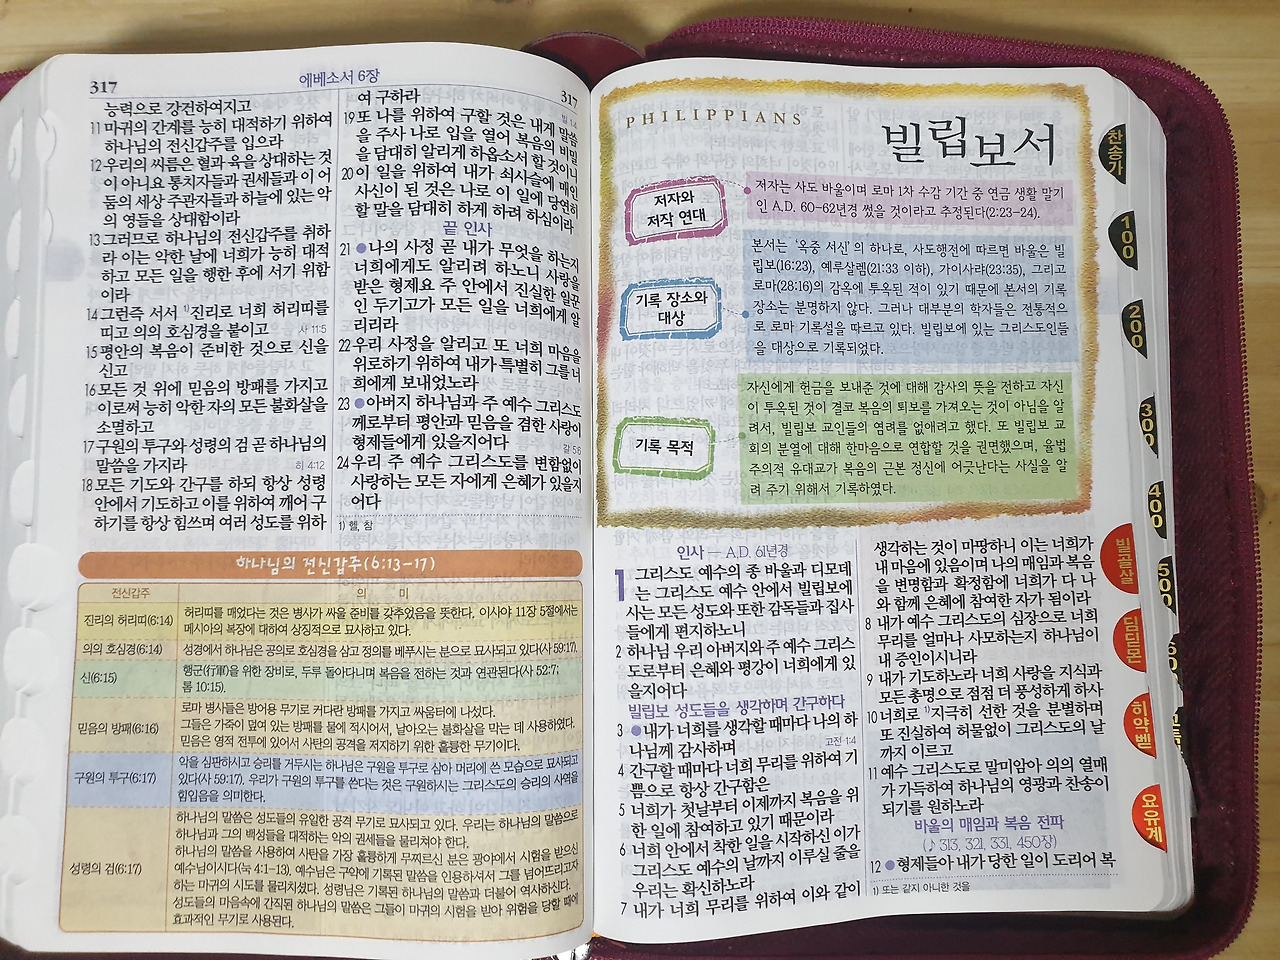 317
에베소서 6장
317
능력으로 강건하여지고
11 마귀의 간계를 능히 대적하기 위하여
하나님의 전신갑주를 입으라
12 우리의 씨름은 혈과 육을 상대하는 것
이 아니요 통치자들과 권세들과 이 어
둠의 세상 주관자들과 하늘에 있는 악
의 영들을 상대함이라
13 그러므로 하나님의 전신갑주를 취하
라 이는 악한 날에 너희가 능히 대적
하고 모든 일을 행한 후에 서기 위함
이라
14 그런즉 서서 1)진리로 너희 허리띠를
띠고 의의 호심경을 붙이고 사 11:5
15 평안의 복음이 준비한 것으로 신을
신고
16 모든 것 위에 믿음의 방패를 가지고
이로써 능히 악한 자의 모든 불화살을
소멸하고
17 구원의 투구와 성령의 검 곧 하나님의
말씀을 가지라 히 4:12
18 모든 기도와 간구를 하되 항상 성령
안에서 기도하고 이를 위하여 깨어 구
하기를 항상 힘쓰며 여러 성도를 위하
여 구하라
19 또 나를 위하여 구할 것은 내게 말씀
을 주사 나로 입을 열어 복음의 비밀
을 담대히 알리게 하옵소서 할 것이니
20 이 일을 위하여 내가 쇠사슬에 매인
사신이 된 것은 나로 이 일에 당연히
할 말을 담대히 하게 하려 하심이라
끝 인사
21 ●나의 사정 곧 내가 무엇을 하는지
너희에게도 알리려 하노니 사랑을
받은 형제요 주 안에서 진실한 일꾼
인 두기고가 모든 일을 너희에게 알
리리라
22 우리 사정을 알리고 또 너희 마음을
위로하기 위하여 내가 특별히 그를 너
희에게 보내었노라
23 ●아버지 하나님과 주 예수 그리스도
께로부터 평안과 믿음을 겸한 사랑이
형제들에게 있을지어다 갈 5:6
24 우리 주 예수 그리스도를 변함없이
사랑하는 모든 자에게 은혜가 있을지
어다
1) 헬, 참
하나님의 전신갑주(6:13-17)
전신갑주 의 미
진리의 허리띠(6:14)
허리띠를 매었다는 것은 병사가 싸울 준비를 갖추었음을 뜻한다. 이사야 11장 5절에서는
메시아의 복장에 대하여 상징적으로 묘사하고 있다.
의의 호심경(6:14)
성경에서 하나님은 공의로 호심경을 삼고 정의를 베푸시는 분으로 묘사되고 있다(사 59:17).
신(6:15)
행군(行軍)을 위한 장비로, 두루 돌아다니며 복음을 전하는 것과 연관된다(사 52:7;
롬 10:15).
믿음의 방패(6:16)
로마 병사들은 방어용 무기로 커다란 방패를 가지고 싸움터에 나섰다.
그들은 가죽이 덮여 있는 방패를 물에 적시어서, 날아오는 불화살을 막는 데 사용하였다.
믿음은 영적 전투에 있어서 사탄의 공격을 저지하기 위한 훌륭한 무기이다.
구원의 투구(6:17)
악을 심판하시고 승리를 거두시는 하나님은 구원을 투구로 삼아 머리에 쓴 모습으로 묘사되고
있다(사 59:17). 우리가 구원의 투구를 쓴다는 것은 구원하시는 그리스도의 승리의 사역을
힘입음을 의미한다.
성령의 검(6:17)
하나님의 말씀은 성도들의 유일한 공격 무기로 묘사되고 있다. 우리는 하나님의 말씀으로
하나님과 그의 백성들을 대적하는 악의 권세들을 물리쳐야 한다.
하나님의 말씀을 사용하여 사탄을 가장 훌륭하게 무찌르신 분은 광야에서 시험을 받으신
예수님이시다(눅 4:1-13). 예수님은 구약에 기록된 말씀을 인용하셔서 그를 넘어뜨리고자
하는 마귀의 시도를 물리치셨다. 성령님은 기록된 하나님의 말씀과 더불어 역사하신다.
성도들의 마음속에 간직된 하나님의 말씀은 그들이 마귀의 시험을 받아 위험을 당할 때에
효과적인 무기로 사용된다.
PHILIPPIANS
빌립보서
저자와
저작 연대
저자는 사도 바울이며 로마 1차 수감 기간 중 연금 생활 말기
인 A.D. 60-62년경 썼을 것이라고 추정된다(2:23-24).
기록 장소와
대상
본서는 '옥중 서신'의 하나로, 사도행전에 따르면 바울은 빌
립보(16:23), 예루살렘(21:33 이하), 가이사랴(23:35), 그리고
로마(28:16)의 감옥에 투옥된 적이 있기 때문에 본서의 기록
장소는 분명하지 않다. 그러나 대부분의 학자들은 전통적으
로 로마 기록설을 따르고 있다. 빌립보에 있는 그리스도인들
을 대상으로 기록되었다.
기록 목적
자신에게 헌금을 보내준 것에 대해 감사의 뜻을 전하고 자신
이 투옥된 것이 결코 복음의 퇴보를 가져오는 것이 아님을 알
려서, 빌립보 교인들의 염려를 없애려고 했다. 또 빌립보 교
회의 분열에 대해 한마음으로 연합할 것을 권면했으며, 율법
주의적 유대교가 복음의 근본 정신에 어긋난다는 사실을 알
려 주기 위해서 기록하였다.
인사 — A.D. 61년경
1 그리스도 예수의 종 바울과 디모데
는 그리스도 예수 안에서 빌립보에
사는 모든 성도와 또한 감독들과 집사
들에게 편지하노니
2 하나님 우리 아버지와 주 예수 그리스
도로부터 은혜와 평강이 너희에게 있
을지어다
빌립보 성도들을 생각하며 간구하다
3 ●내가 너희를 생각할 때마다 나의 하
나님께 감사하며 고전 1:4
4 간구할 때마다 너희 무리를 위하여 기
쁨으로 항상 간구함은
5 너희가 첫날부터 이제까지 복음을 위
한 일에 참여하고 있기 때문이라
6 너희 안에서 착한 일을 시작하신 이가
그리스도 예수의 날까지 이루실 줄을
우리는 확신하노라
7 내가 너희 무리를 위하여 이와 같이
생각하는 것이 마땅하니 이는 너희가
내 마음에 있음이며 나의 매임과 복음
을 변명함과 확정함에 너희가 다 나
와 함께 은혜에 참여한 자가 됨이라
8 내가 예수 그리스도의 심장으로 너희
무리를 얼마나 사모하는지 하나님이
내 증인이시니라
9 내가 기도하노라 너희 사랑을 지식과
모든 총명으로 점점 더 풍성하게 하사
10 너희로 1)지극히 선한 것을 분별하며
또 진실하여 허물없이 그리스도의 날
까지 이르고
11 예수 그리스도로 말미암아 의의 열매
가 가득하여 하나님의 영광과 찬송이
되기를 원하노라
바울의 매임과 복음 전파
(♪ 313, 321, 331, 450장)
12 ●형제들아 내가 당한 일이 도리어 복
1) 또는 같지 아니한 것을
찬송가
100
200
300
400
500
빌골살
딤딤몬
히약벧
요유계